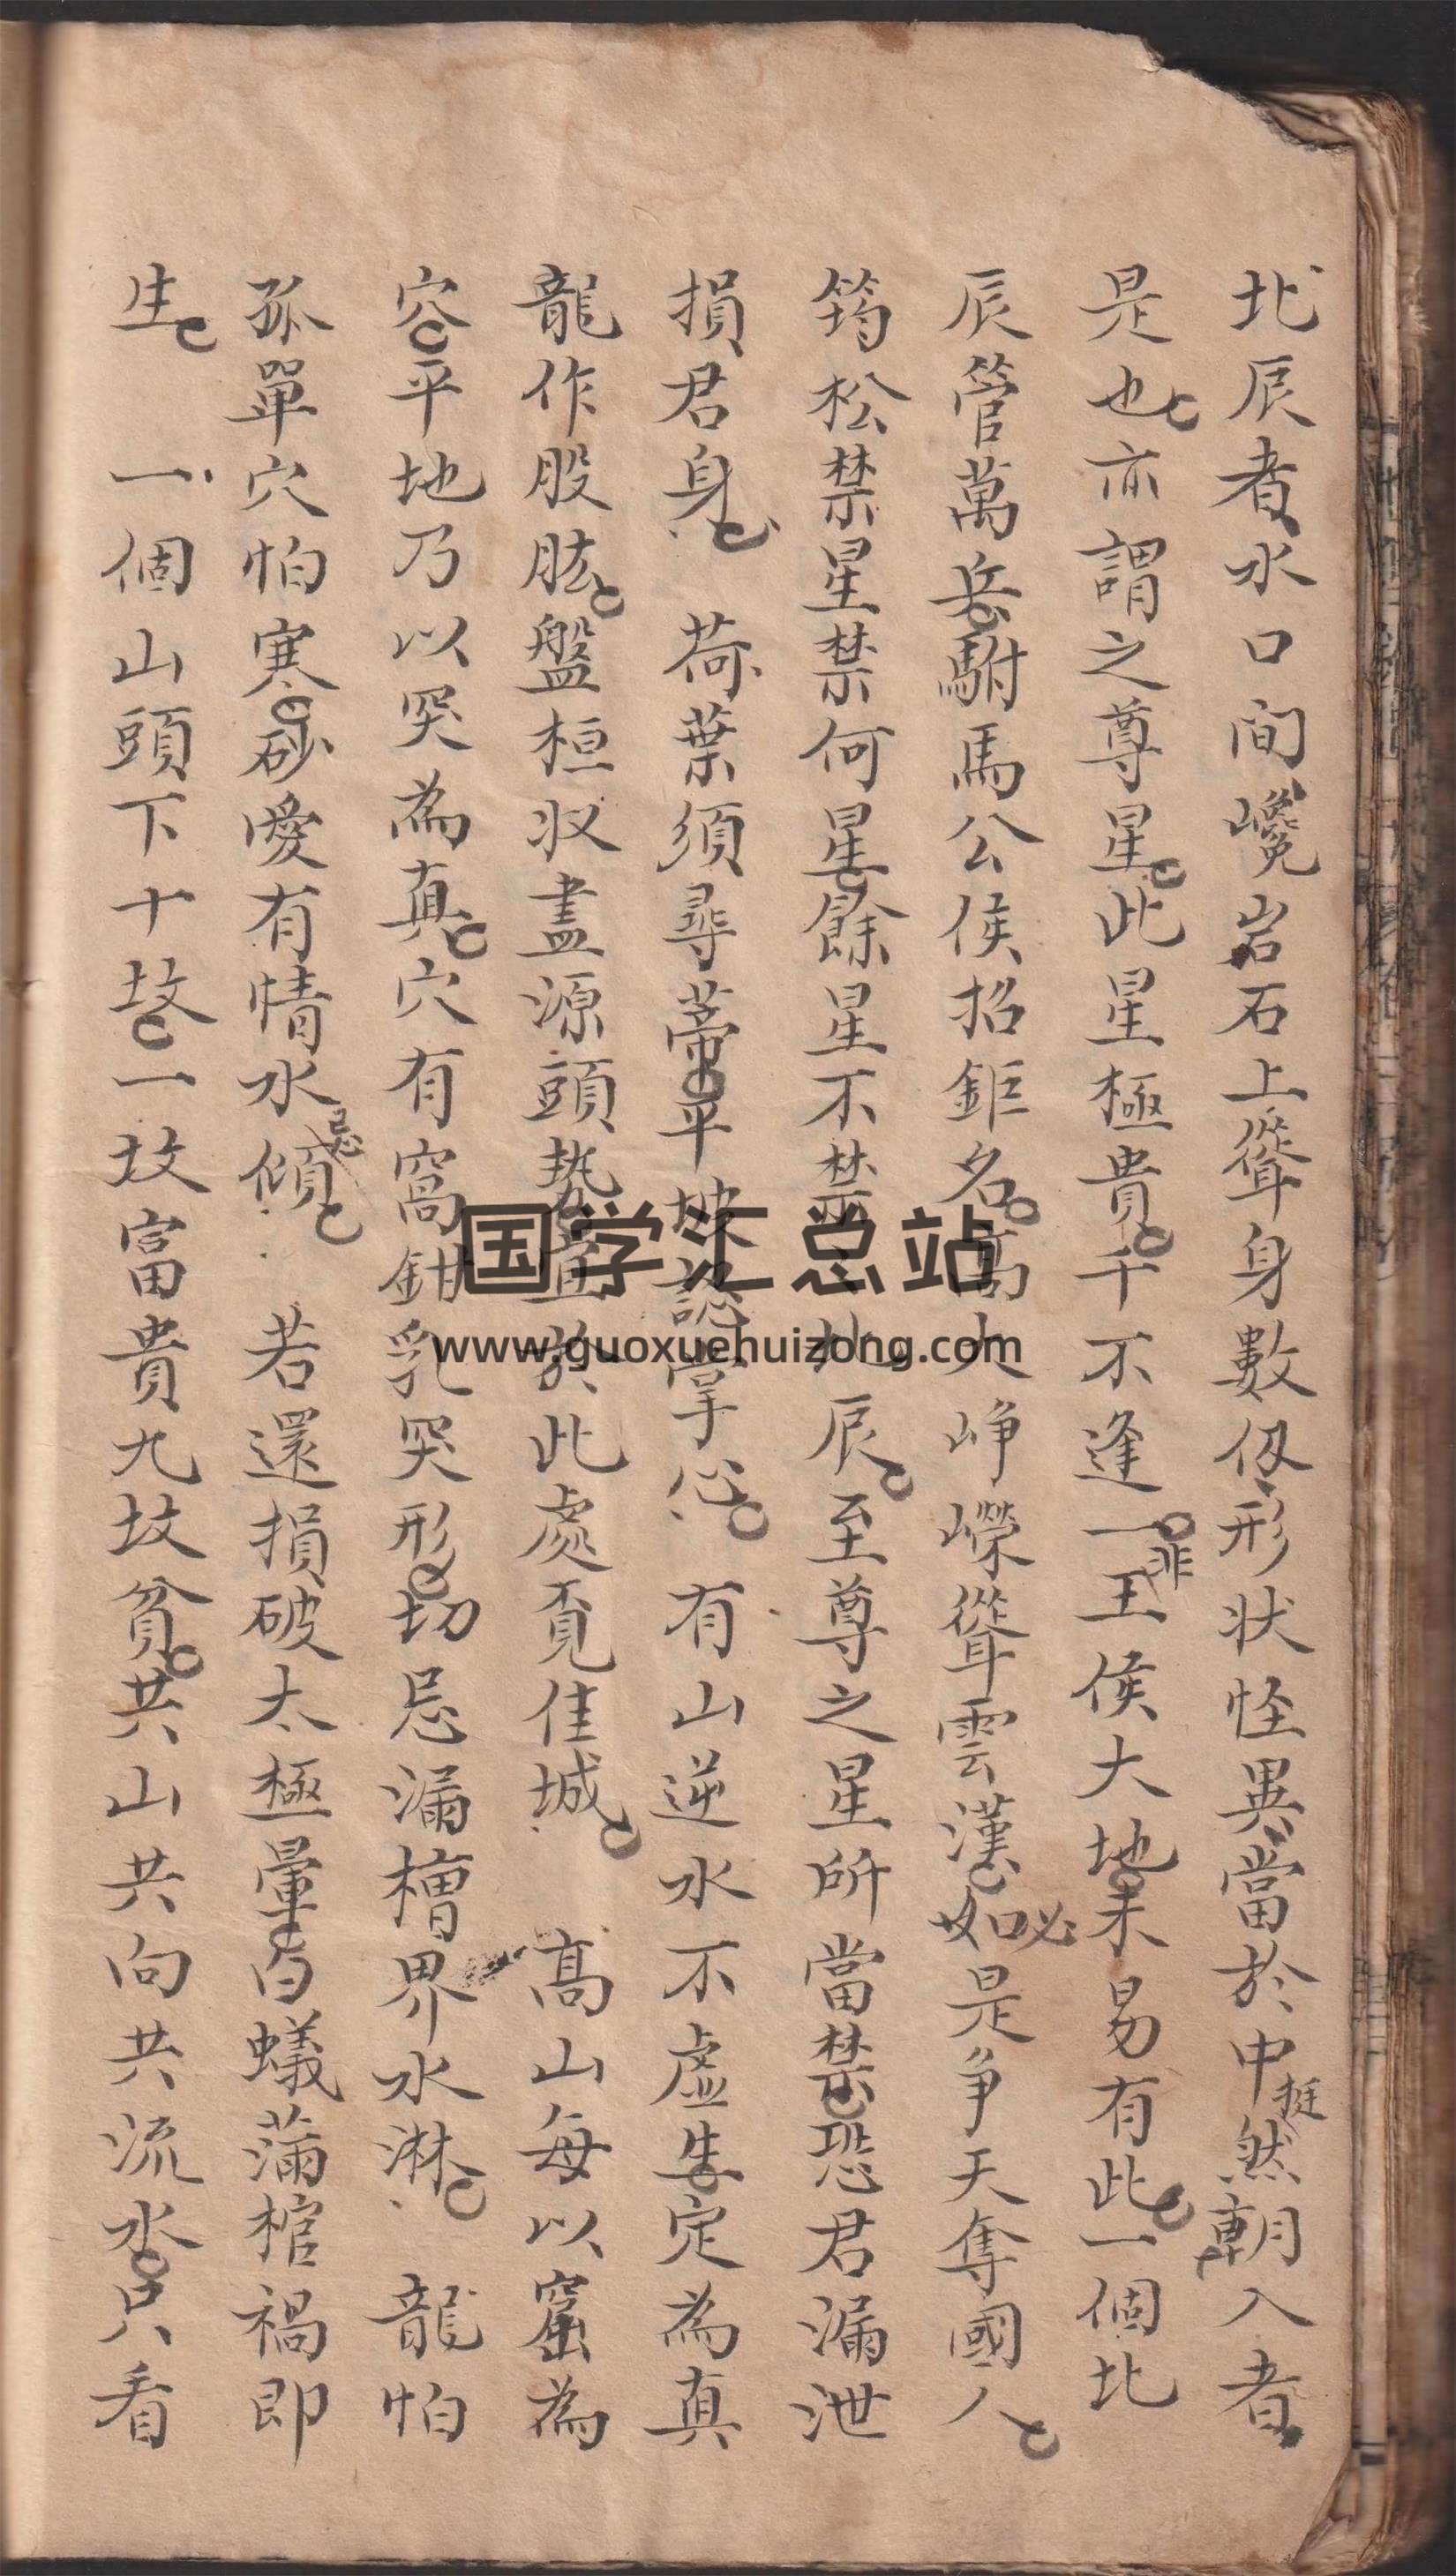 北辰者水口間巉岩石上聳身數仭形状怪異當於中挺然朝入者
是也亦謂之尊星此星極貴千不逢一非王侯大地未易有此一個北
辰管萬兵駙馬公侯招鉅名高大崢嶸聳雲漢如必是争天奪國人
筠松禁星禁何星餘星不禁北辰至尊之星所當禁恐君漏泄
損君身 荷葉須尋蒂平坡認掌心 有山逆水不虛生定為真
龍作股肱盤桓収盡源頭勢直於此處覔佳城 髙山每以窟為
容平地乃以突為真穴有窩鉗乳突形切忌漏槽界水淋 龍怕
孤單穴怕寒砂愛有情水忌傾 若還損破太極暈白蟻蒲棺禍即
生 一個山頭下十坟一坟富貴九坟貧共山共向共流水只看
国学汇总站
www.guoxuehuizong.com